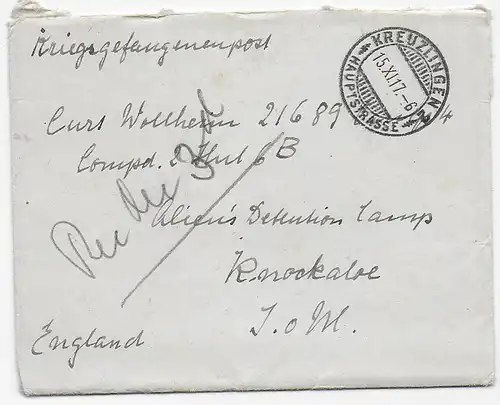 Kriegsgefangenenpost
KREUZLINGEN
15.XI.17.-6
HAUPTSTRASSE
Curt Wollheim 21689
Compd. 2 Hut 6B
Alien's Detention Camp
Knockaloe
I. o M.
England